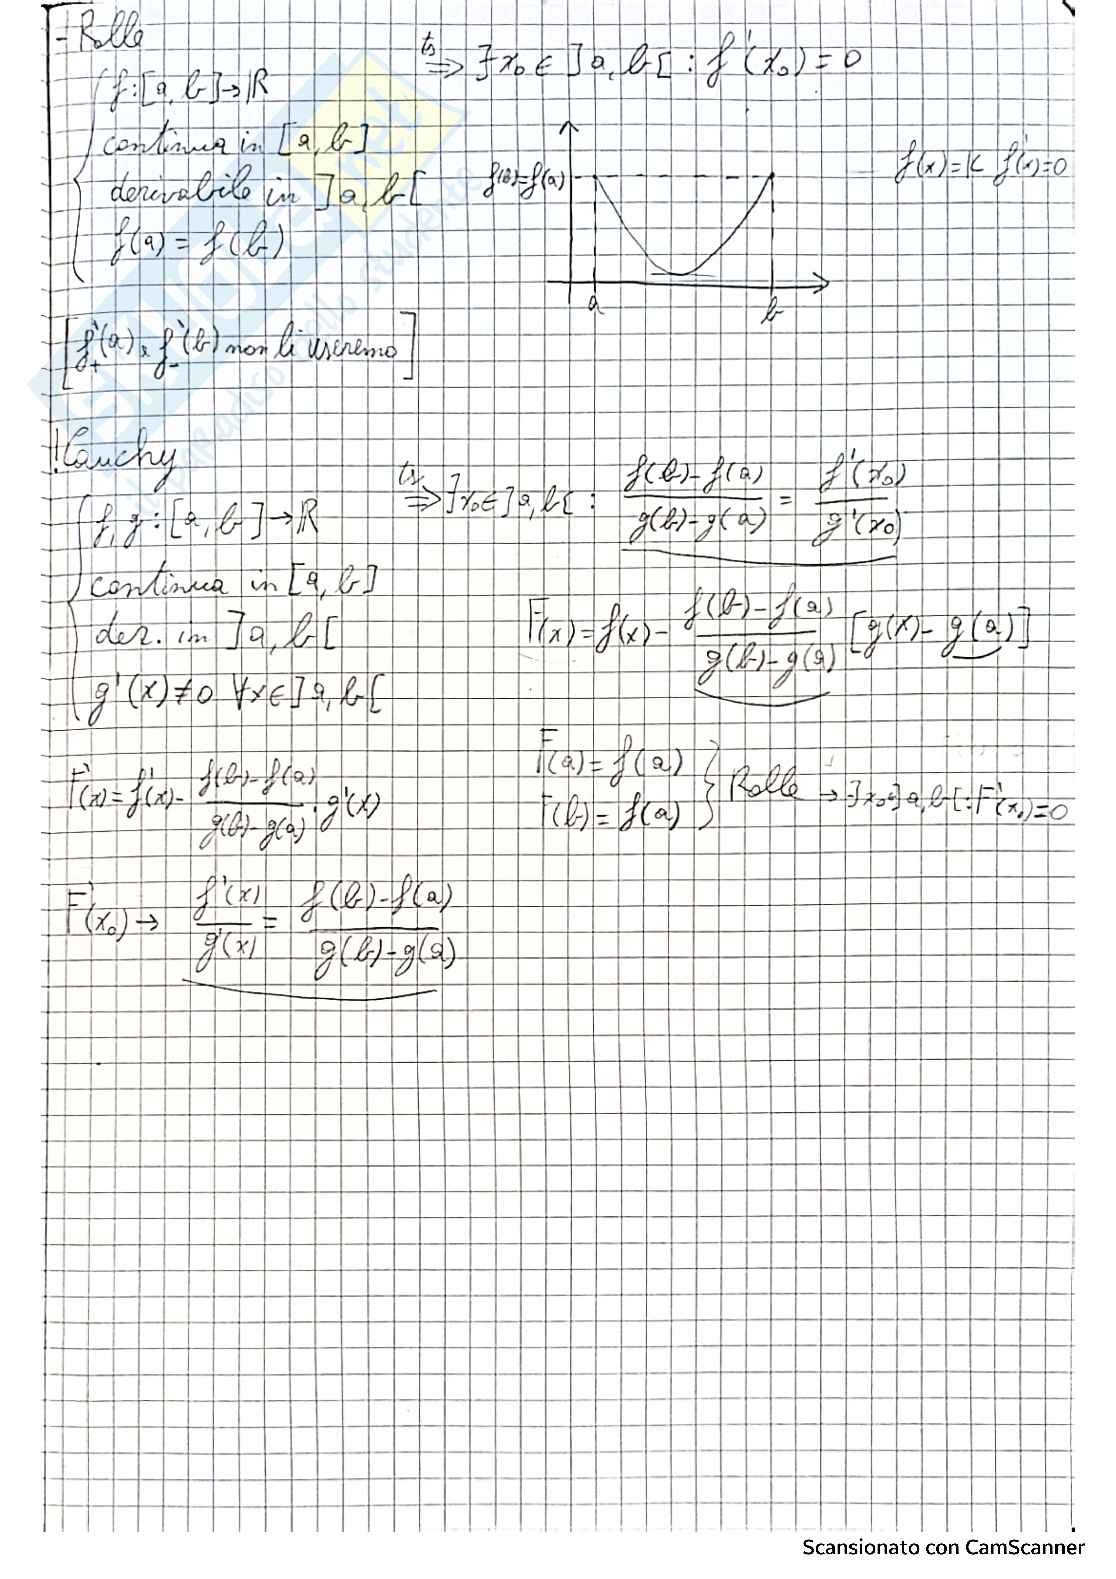 - Rolle
f: [a, b] → ℝ
continua in [a, b]
derivabile in ]a, b[
f(a) = f(b)
ts ⇒ ∃ x₀ ∈ ]a, b[ : f'(x₀) = 0
f(b)=f(a)
a
b
f(x) = K f'(x) = 0
[f'₊(a), f'₋(b) non li useremo]
! Cauchy
f, g : [a, b] → ℝ
continua in [a, b]
der. in ]a, b[
g'(x) ≠ 0 ∀x ∈ ]a, b[
ts ⇒ ∃ x₀ ∈ ]a, b[ : (f(b) - f(a))/(g(b) - g(a)) = f'(x₀)/g'(x₀)
F(x) = f(x) - (f(b) - f(a))/(g(b) - g(a)) [g(x) - g(a)]
F'(x) = f'(x) - (f(b) - f(a))/(g(b) - g(a)) · g'(x)
F(a) = f(a)
F(b) = f(a)
} Rolle → ∃ x₀ ∈ ]a, b[ : F'(x₀) = 0
F'(x₀) → f'(x)/g'(x) = (f(b) - f(a))/(g(b) - g(a))
Scansionato con CamScanner